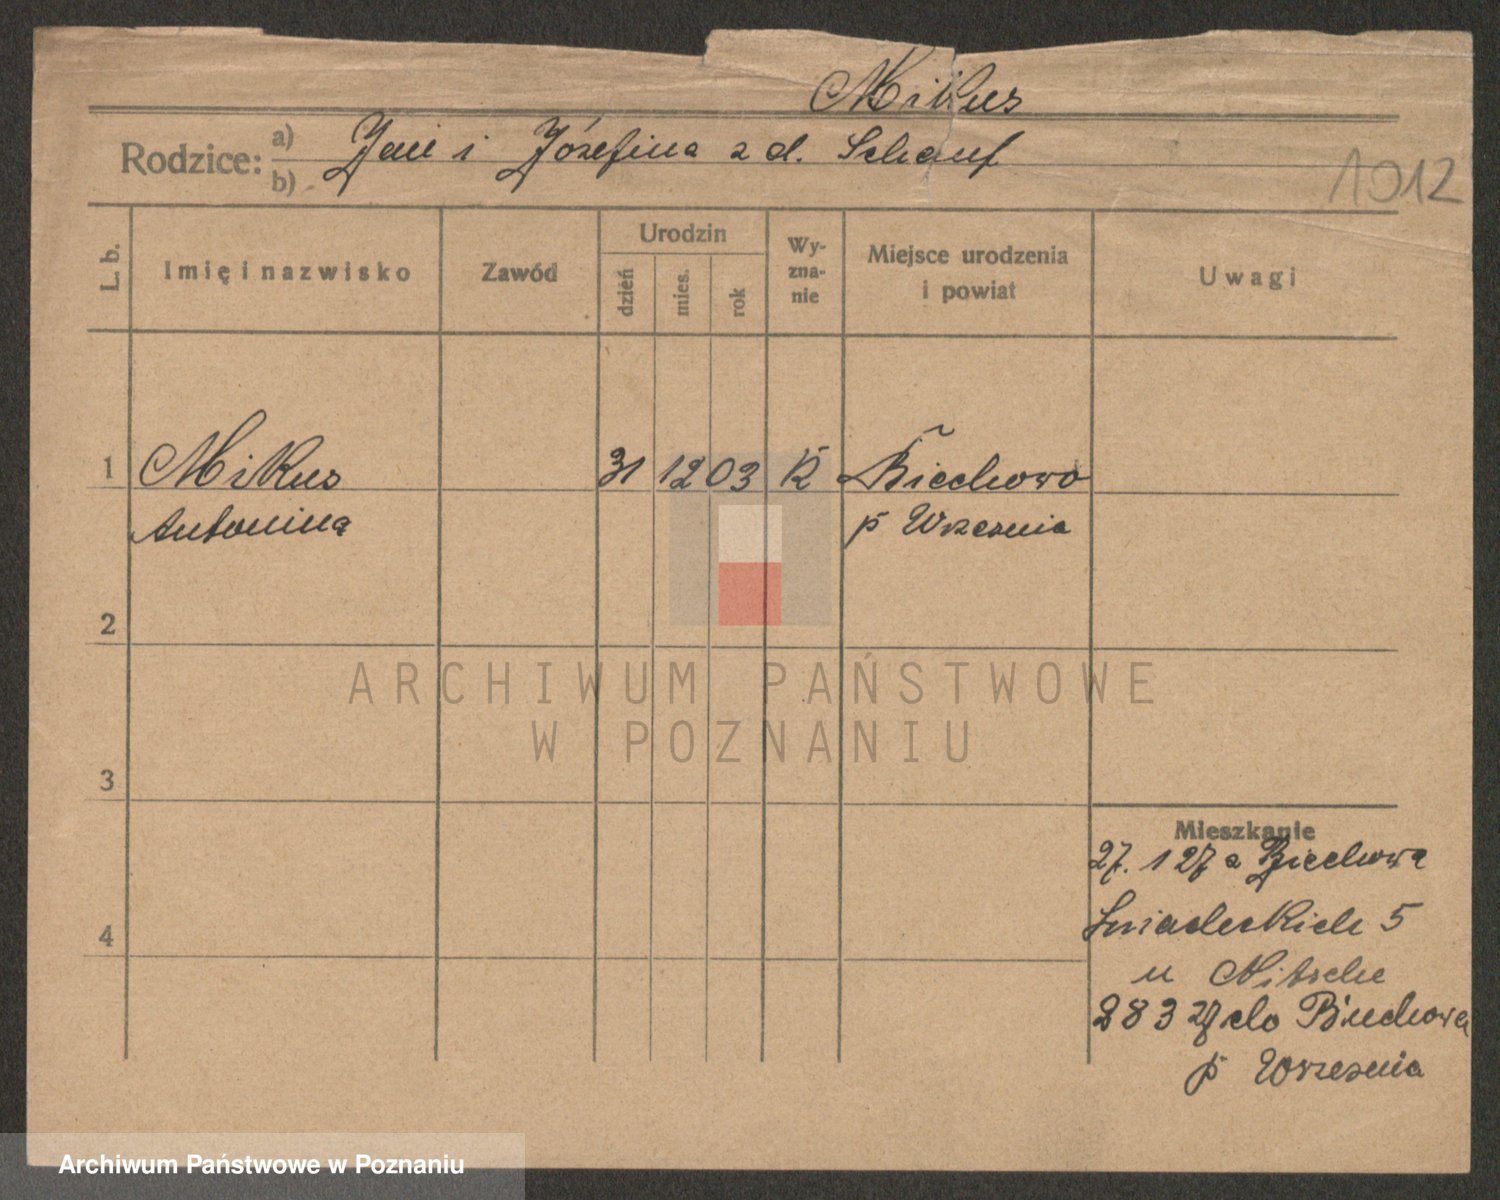 Mikus
Rodzice: a) Jan i Józefina z d. Schauf
b)
1012
L. b.
Imię i nazwisko
Zawód
Urodzin
dzień
mies.
rok
Wy-
zna-
nie
Miejsce urodzenia
i powiat
Uwagi
1 Mikus 31 12 03 K Biechowo
Antonina p Wrzesnia
2
3
4
Mieszkanie
27. 1 27 z Biechowa
Sniadeckich 5
u Nitsche
28 3 27 do Biechowa
p Wrzesnia
ARCHIWUM PAŃSTWOWE
W POZNANIU
Archiwum Państwowe w Poznaniu